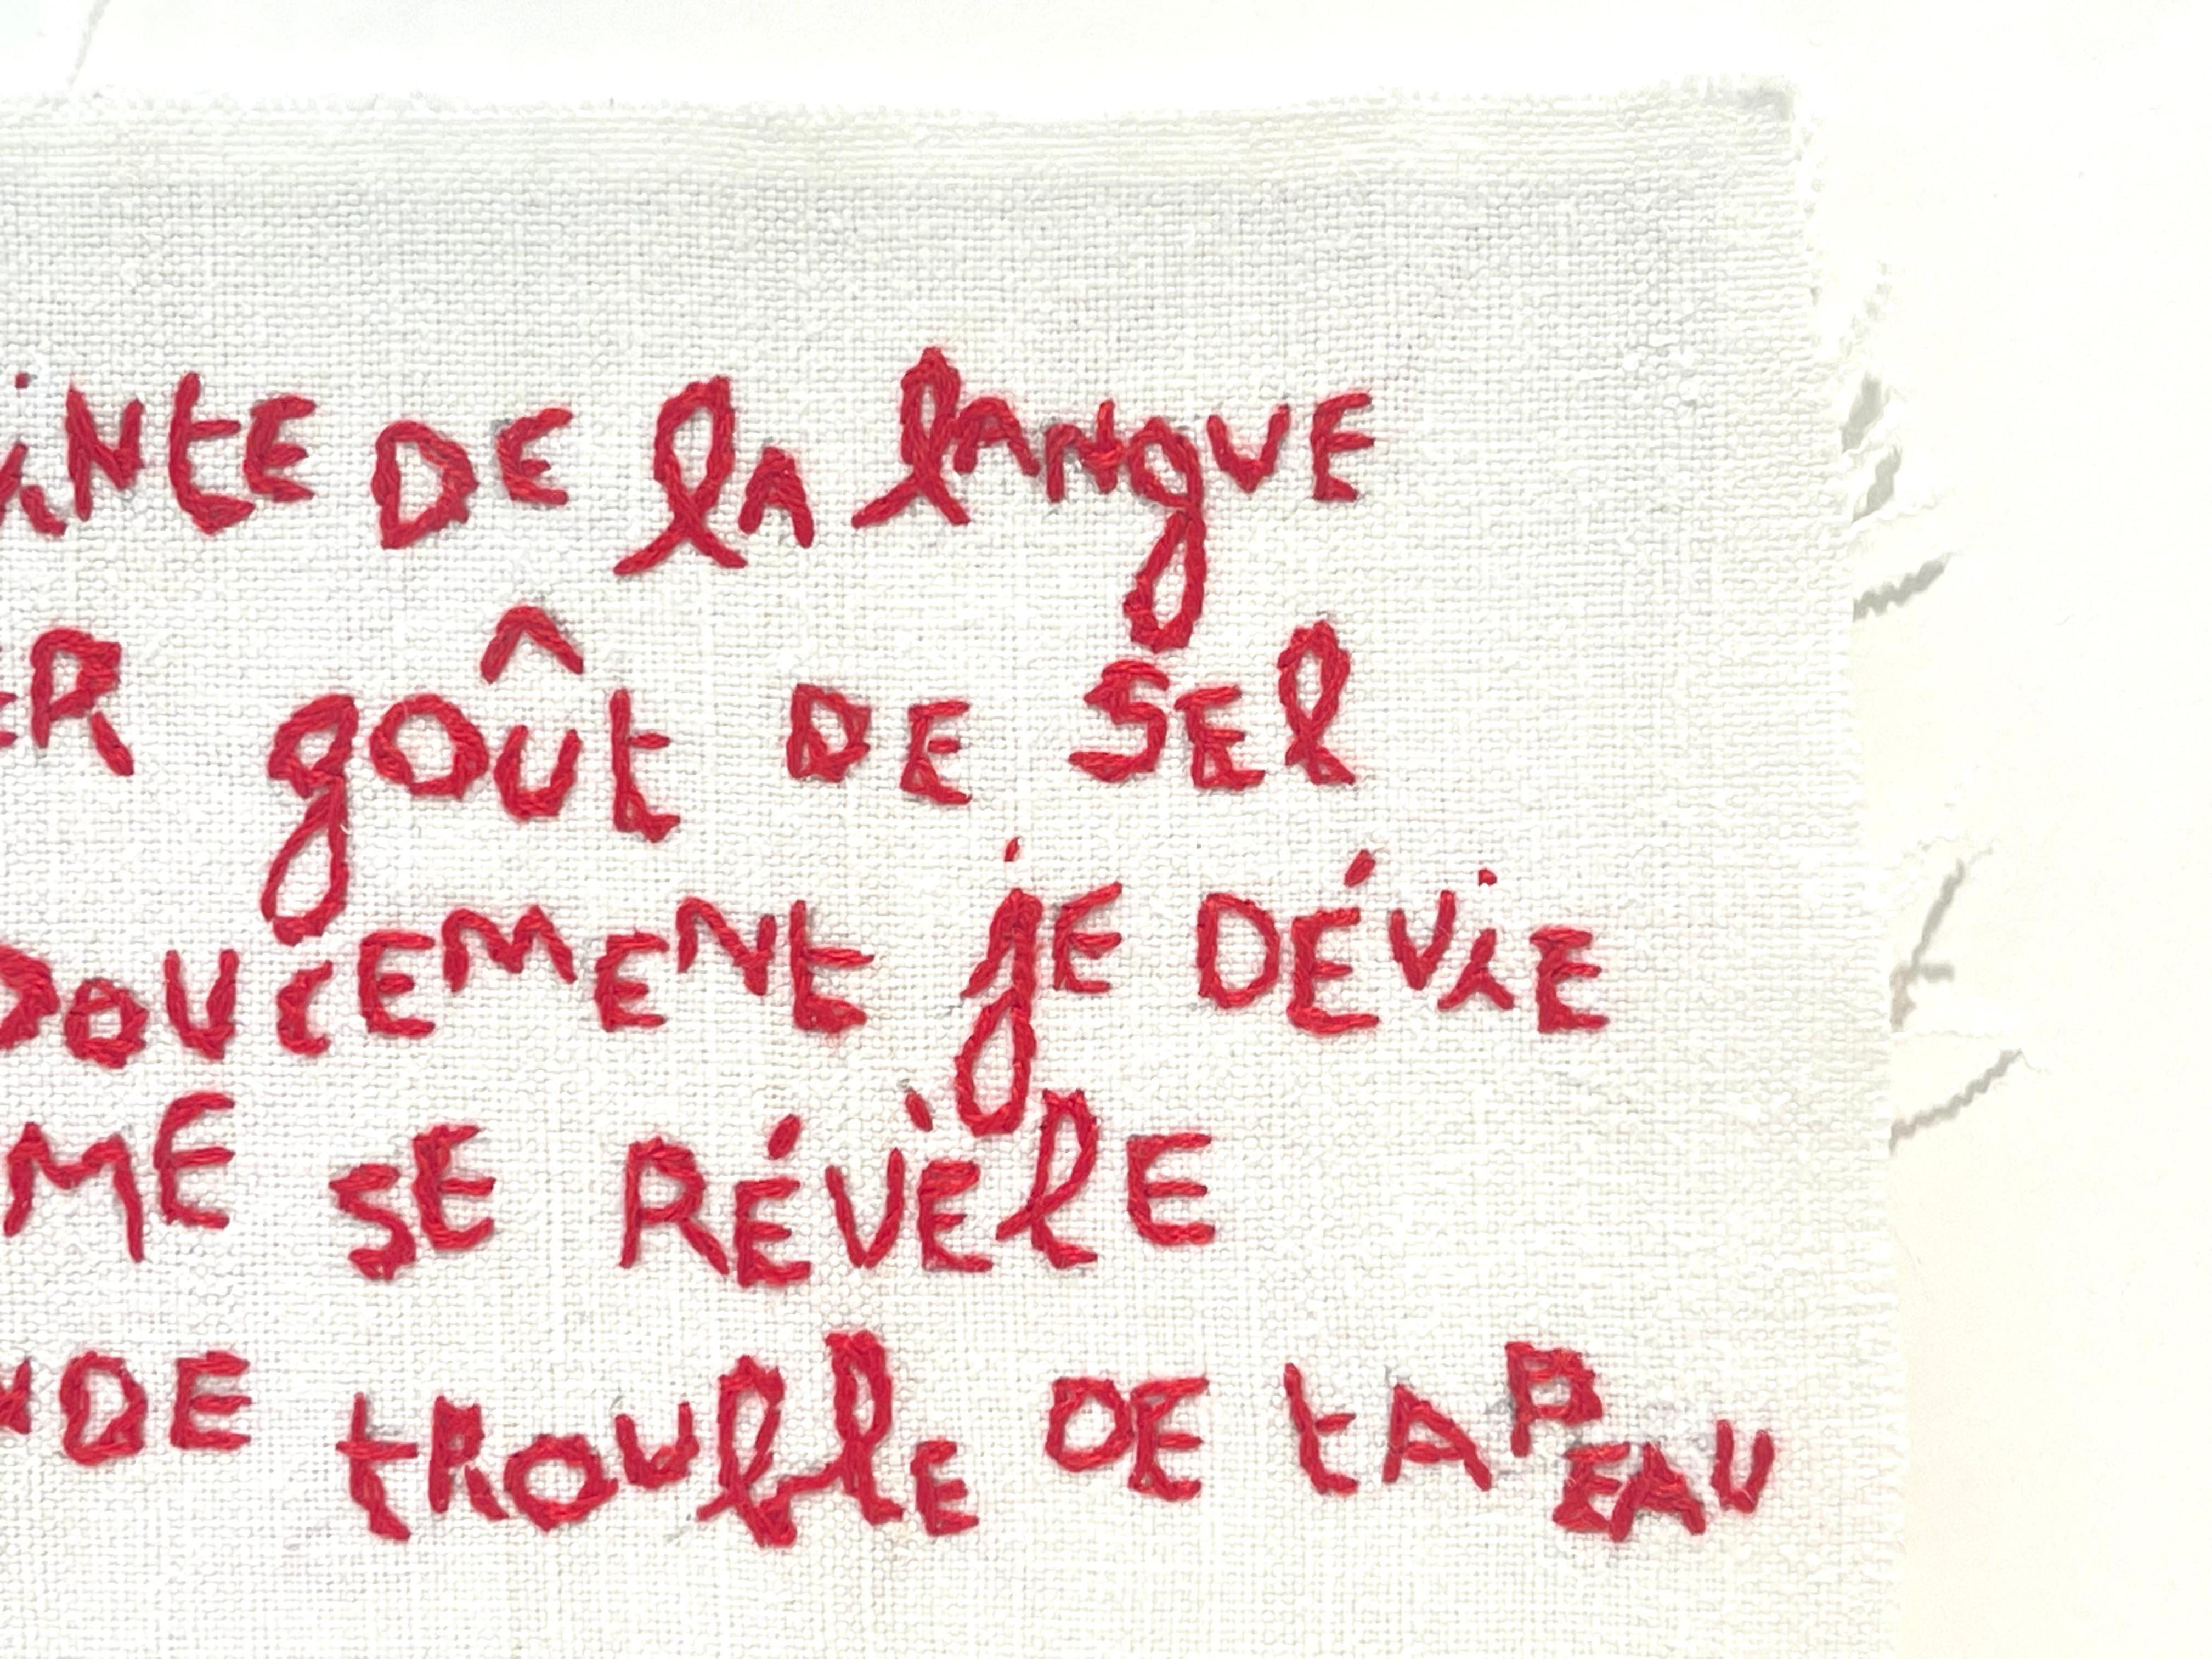 iNtE DE lA lANgUE
ER goût DE SEl
DOUCEMENt jE DÉViE
ME SE RÉVÈlE
NDE tROUblE DE tA PEAU